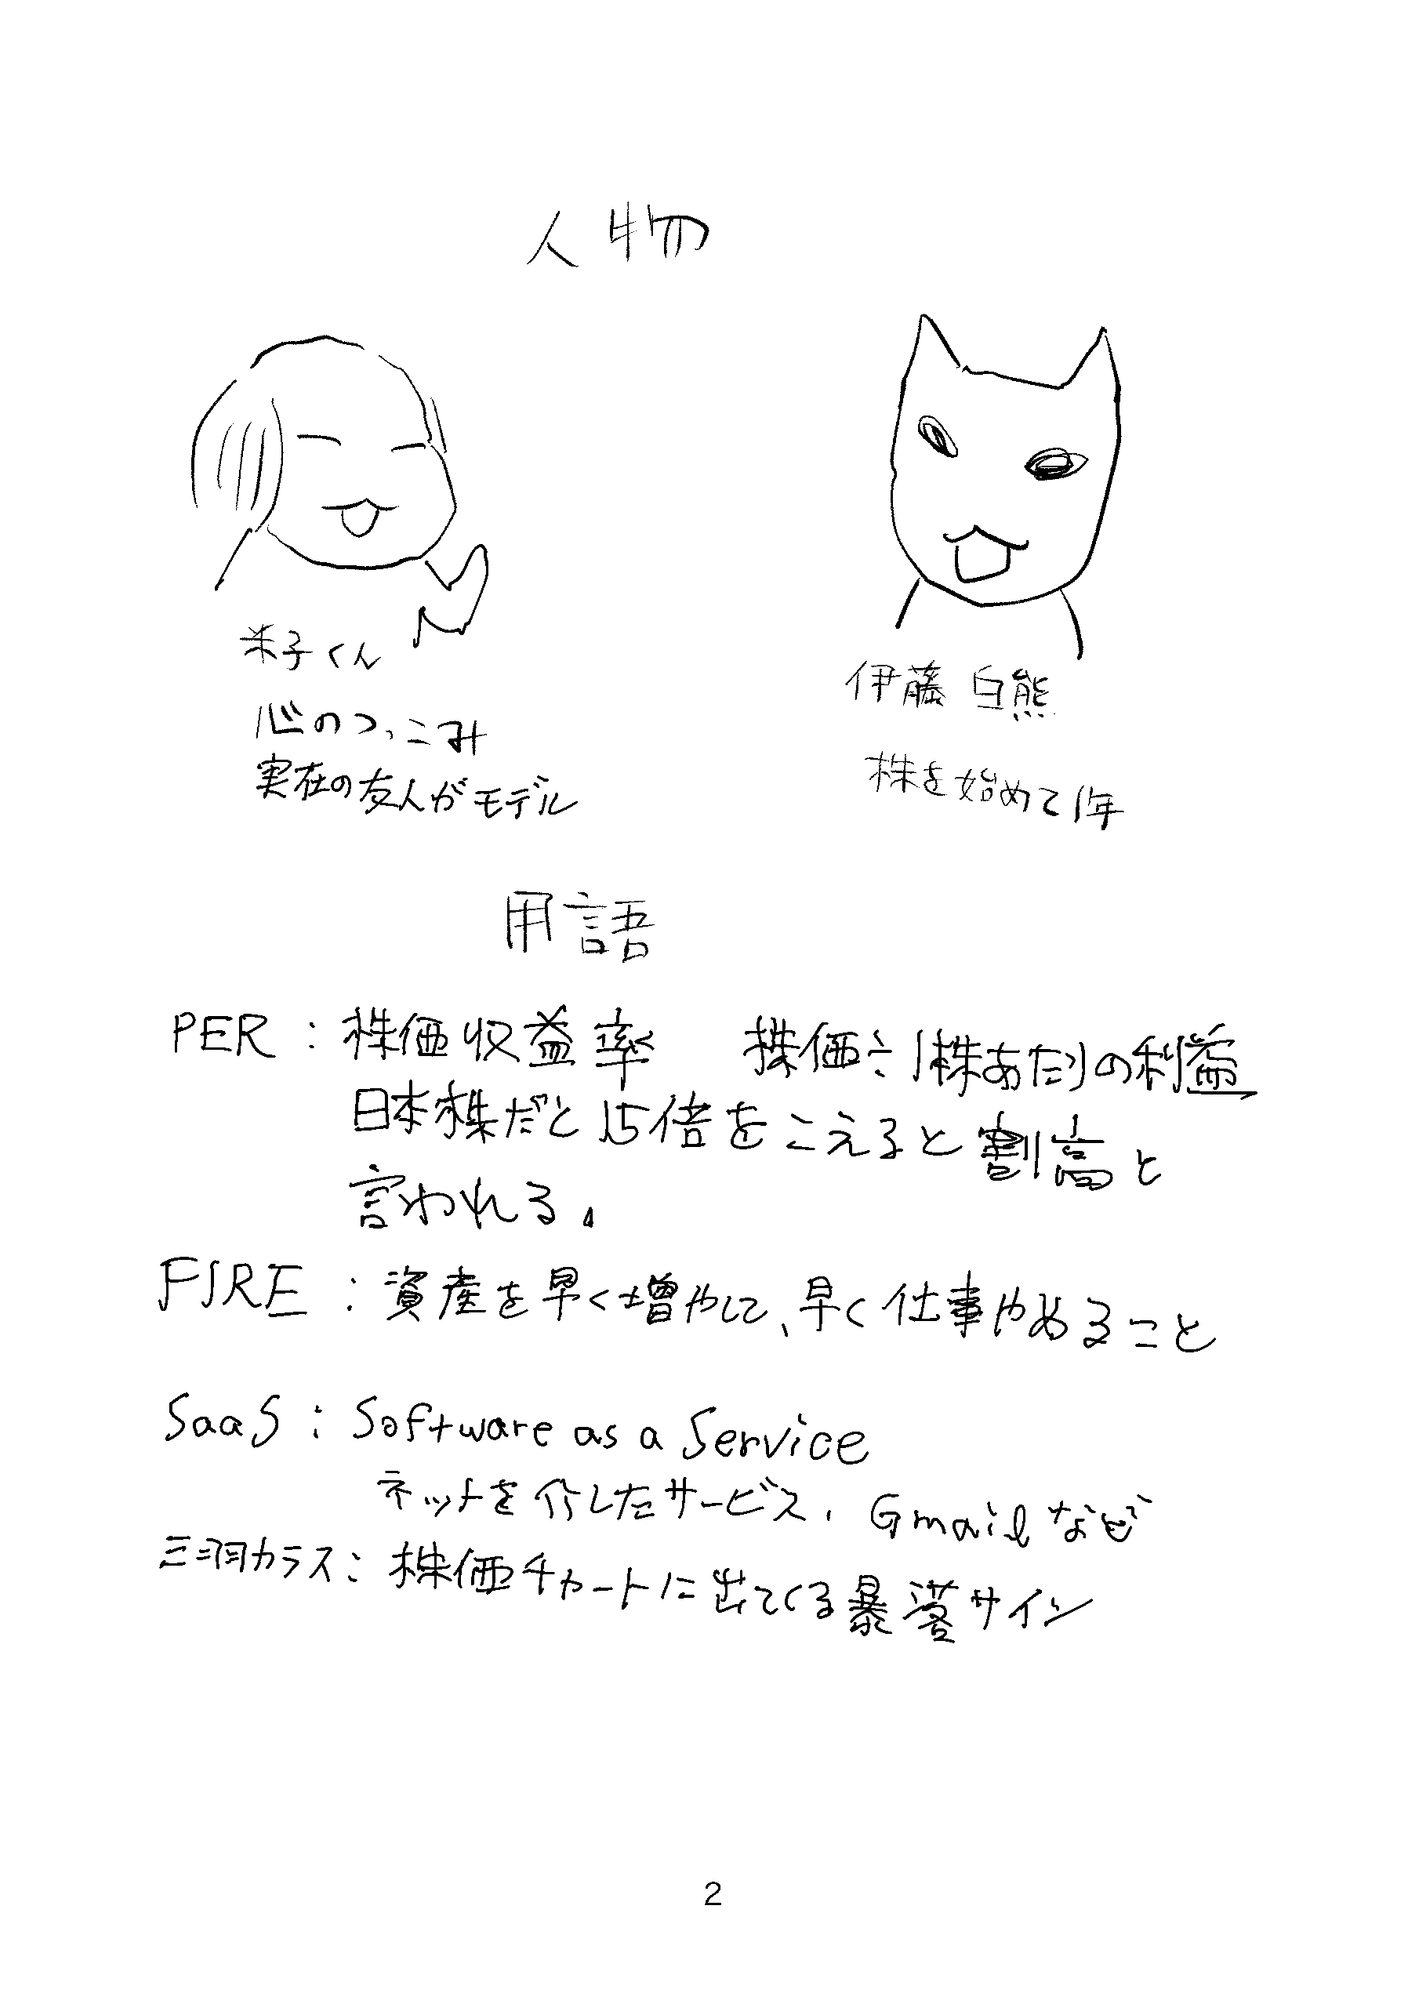 人物
米子くん
心のつっこみ
実在の友人がモデル
伊藤 白熊
株を始めて1年
用語
PER : 株価収益率 株価÷1株あたりの利益
日本株だと15倍をこえると割高と
言われる。
FIRE : 資産を早く増やして、早く仕事やめること
SaaS : Software as a Service
ネットを介したサービス. Gmailなど
三羽カラス: 株価チャートに出てくる暴落サイン
2